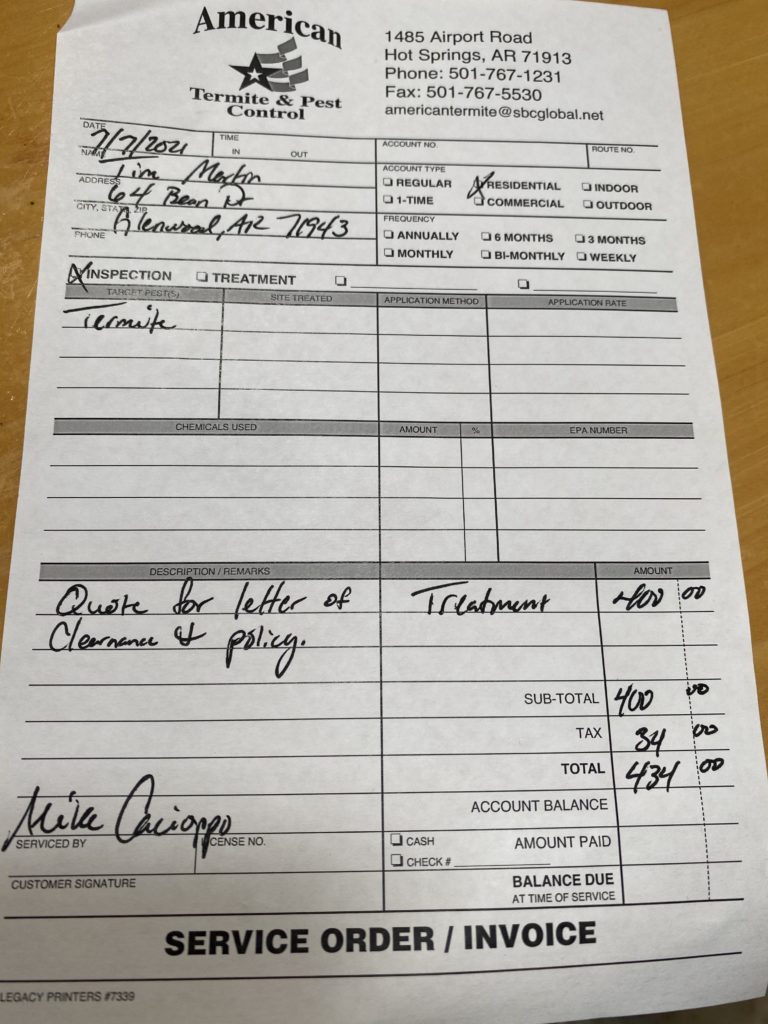 American
Termite & Pest
Control
1485 Airport Road
Hot Springs, AR 71913
Phone: 501-767-1231
Fax: 501-767-5530
americantermite@sbcglobal.net
DATE 7/7/2021 TIME IN OUT ACCOUNT NO. ROUTE NO.
NAME Tim Martin
ADDRESS 64 Bean
CITY, STATE, ZIP Glenwood, AR 71943
PHONE
ACCOUNT TYPE
REGULAR X RESIDENTIAL INDOOR
1-TIME COMMERCIAL OUTDOOR
FREQUENCY
ANNUALLY 6 MONTHS 3 MONTHS
MONTHLY BI-MONTHLY WEEKLY
X INSPECTION TREATMENT
TARGET PEST(S) SITE TREATED APPLICATION METHOD APPLICATION RATE
Termite
CHEMICALS USED AMOUNT % EPA NUMBER
DESCRIPTION / REMARKS AMOUNT
Quote for letter of Treatment 400 00
Clearnance & policy.
SUB-TOTAL 400 00
TAX 34 00
TOTAL 434 00
ACCOUNT BALANCE
Mike Cacioppo
SERVICED BY LICENSE NO. CASH AMOUNT PAID
CHECK #
CUSTOMER SIGNATURE BALANCE DUE
AT TIME OF SERVICE
SERVICE ORDER / INVOICE
LEGACY PRINTERS #7339